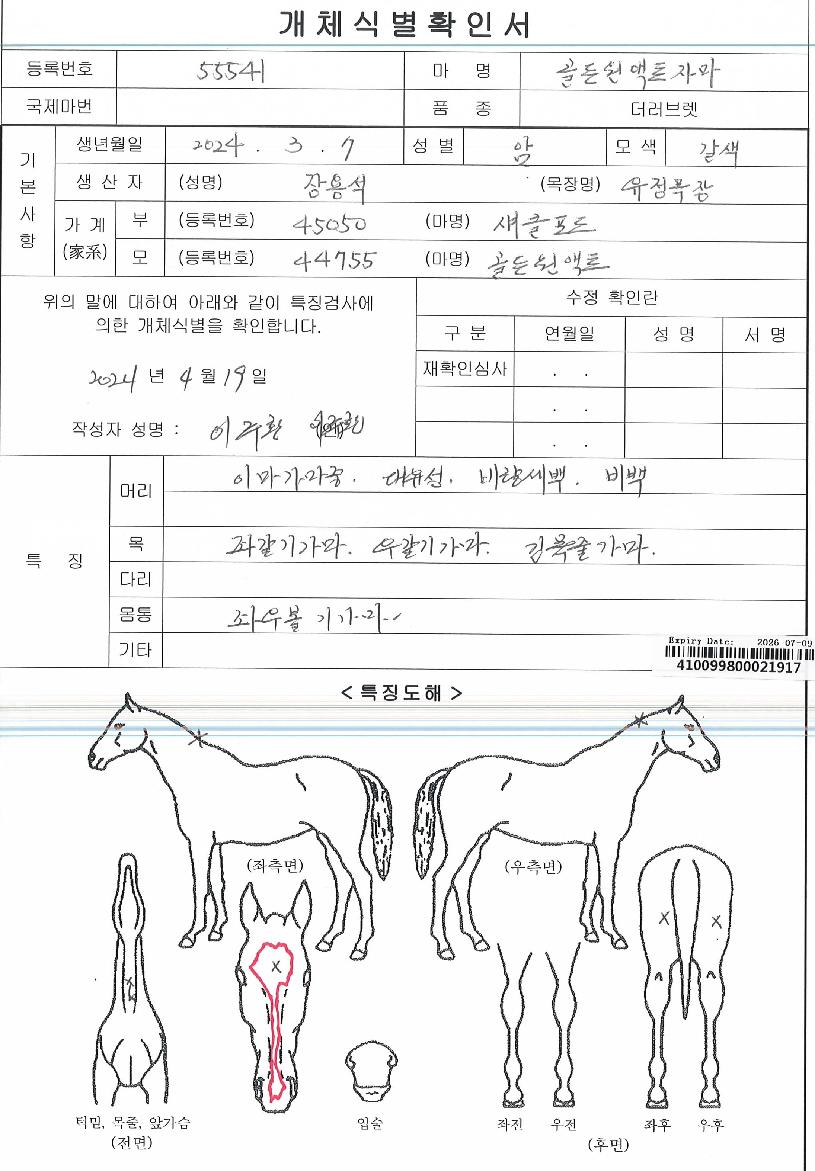 개체식별확인서
등록번호 55541 마 명 골든원액트자마
국제마번 품 종 더러브렛
기본사항
생년월일 2024 . 3 . 7 성 별 암 모 색 갈색
생 산 자 (성명) 장용석 (목장명) 유정목장
가 계 (家系) 부 (등록번호) 45050 (마명) 섀클포드
모 (등록번호) 44755 (마명) 골든원액트
위의 말에 대하여 아래와 같이 특징검사에
의한 개체식별을 확인합니다.
2024 년 4 월 19 일
작성자 성명 : 이주환
수정 확인란
구 분 연월일 성 명 서 명
재확인심사 . .
. .
. .
특 징
머리 이마가마중. 대유성. 비량세백. 비백
목 좌갈기가마. 우갈기가마. 김목줄가마.
다리
몸통 좌우볼기가마
기타
Expiry Date: 2026-07-09
410099800021917
< 특징도해 >
(좌측면) (우측면)
턱밑, 목줄, 앞가슴 입술 좌전 우전 좌후 우후
(전면) (후면)